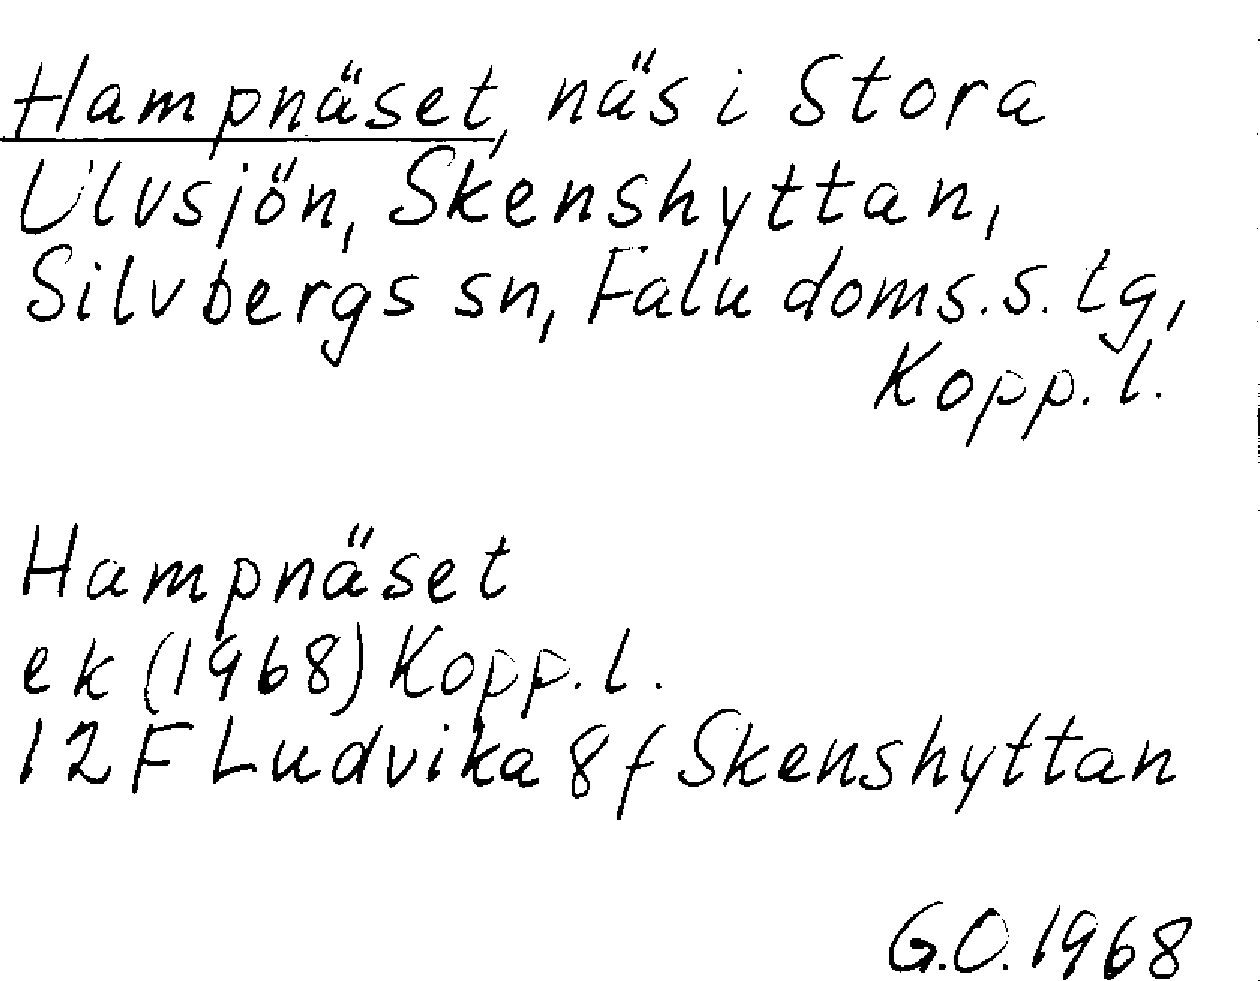 Hampnäset, näs i Stora
Ulvsjön, Skenshyttan,
Silvbergs sn, Falu doms. s. tg,
Kopp. l.
Hampnäset
ek (1968) Kopp. l.
12F Ludvika 8f Skenshyttan
G.O. 1968